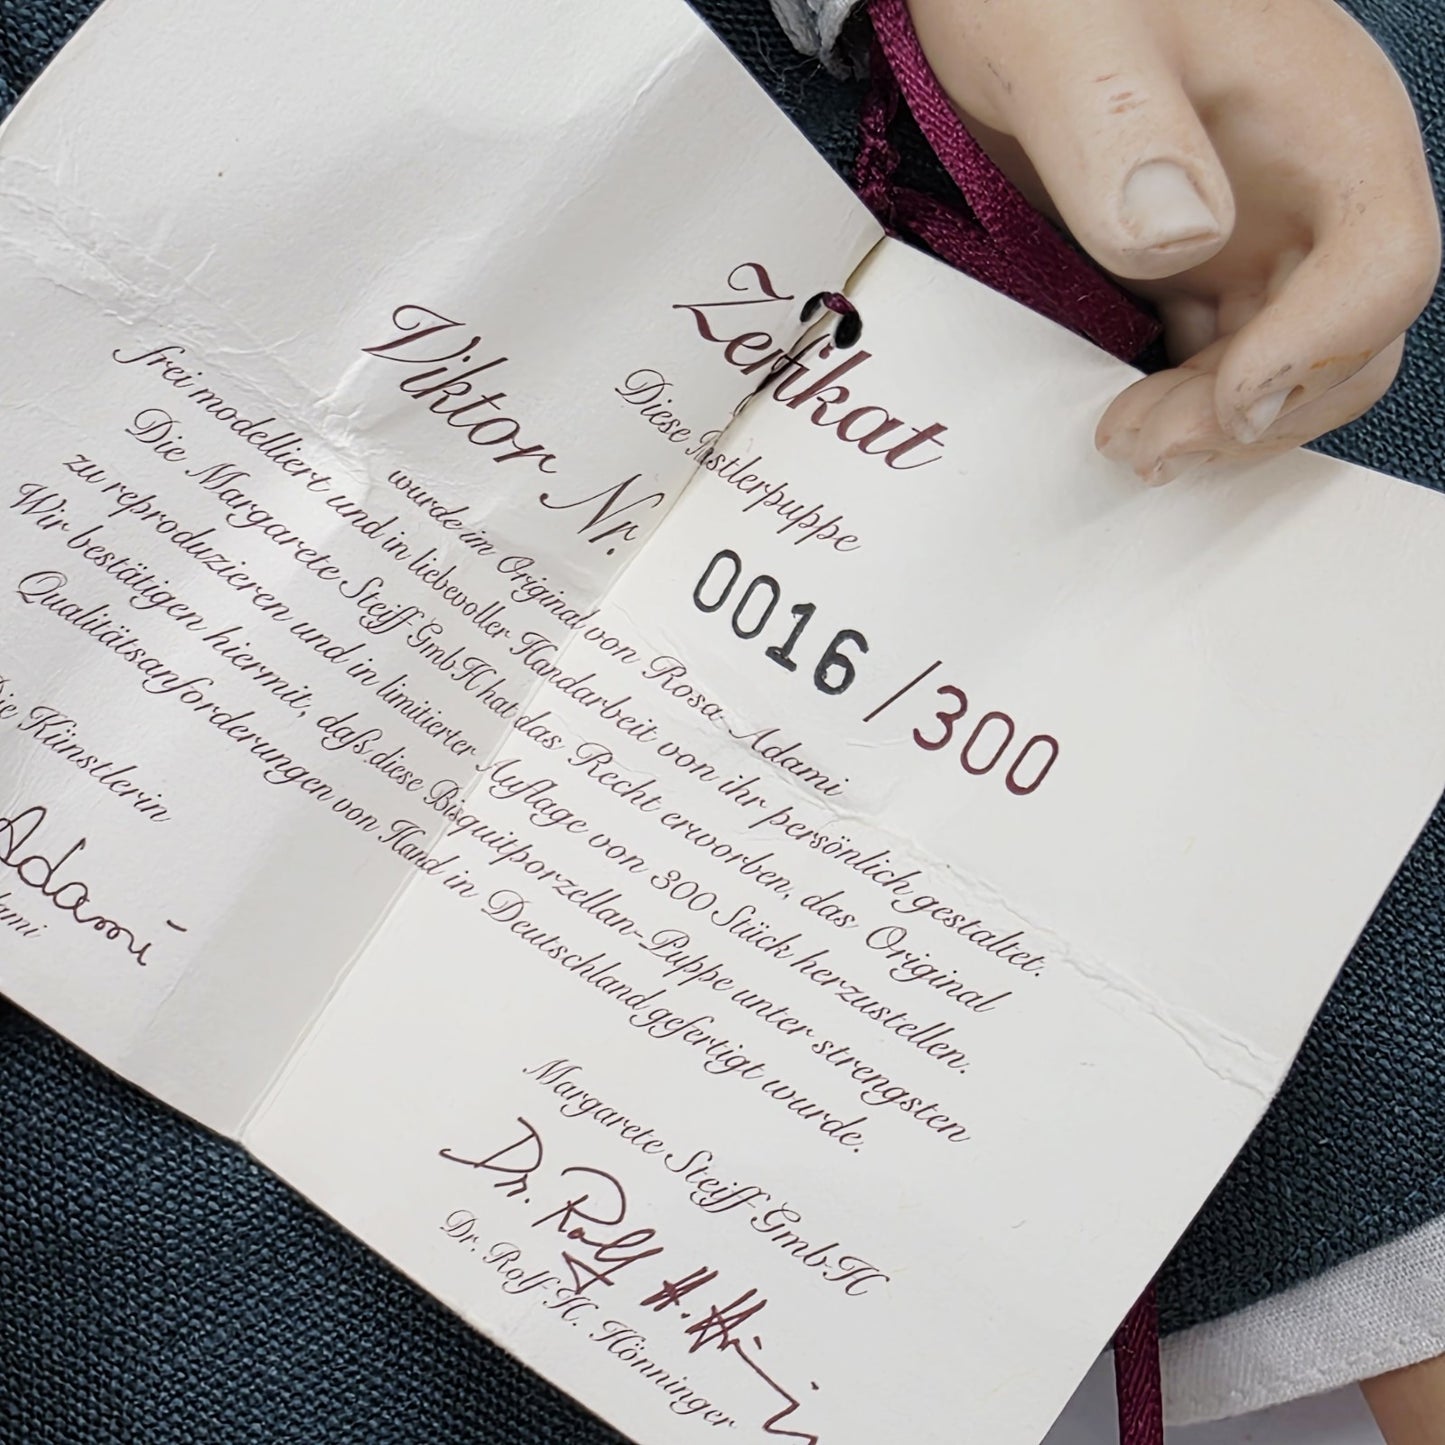 Zertifikat
Diese Künstlerpuppe
Viktor Nr. 0016 / 300
wurde im Original von Rosa Adami
frei modelliert und in liebevoller Handarbeit von ihr persönlich gestaltet.
Die Margarete Steiff GmbH hat das Recht erworben, das Original
zu reproduzieren und in limitierter Auflage von 300 Stück herzustellen.
Wir bestätigen hiermit, daß diese Bisquitporzellan-Puppe unter strengsten
Qualitätsanforderungen von Hand in Deutschland gefertigt wurde.
Die Künstlerin
Adami
Margarete Steiff GmbH
Dr. Rolf H.
Dr. Rolf H. Hönninger